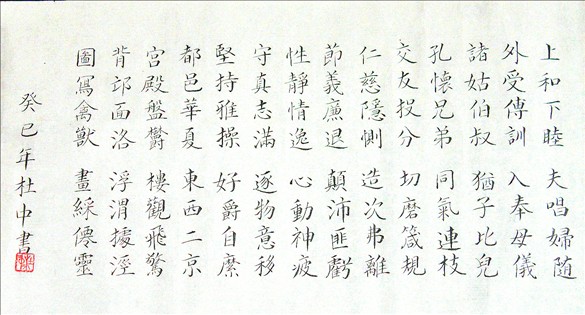 上和下睦 夫唱婦隨
外受傅訓 入奉母儀
諸姑伯叔 猶子比兒
孔懷兄弟 同氣連枝
交友投分 切磨箴規
仁慈隱惻 造次弗離
節義廉退 顛沛匪虧
性靜情逸 心動神疲
守真志滿 逐物意移
堅持雅操 好爵自縻
都邑華夏 東西二京
宮殿盤鬱 樓觀飛驚
背邙面洛 浮渭據涇
圖寫禽獸 畫綵僊靈
癸巳年杜中書